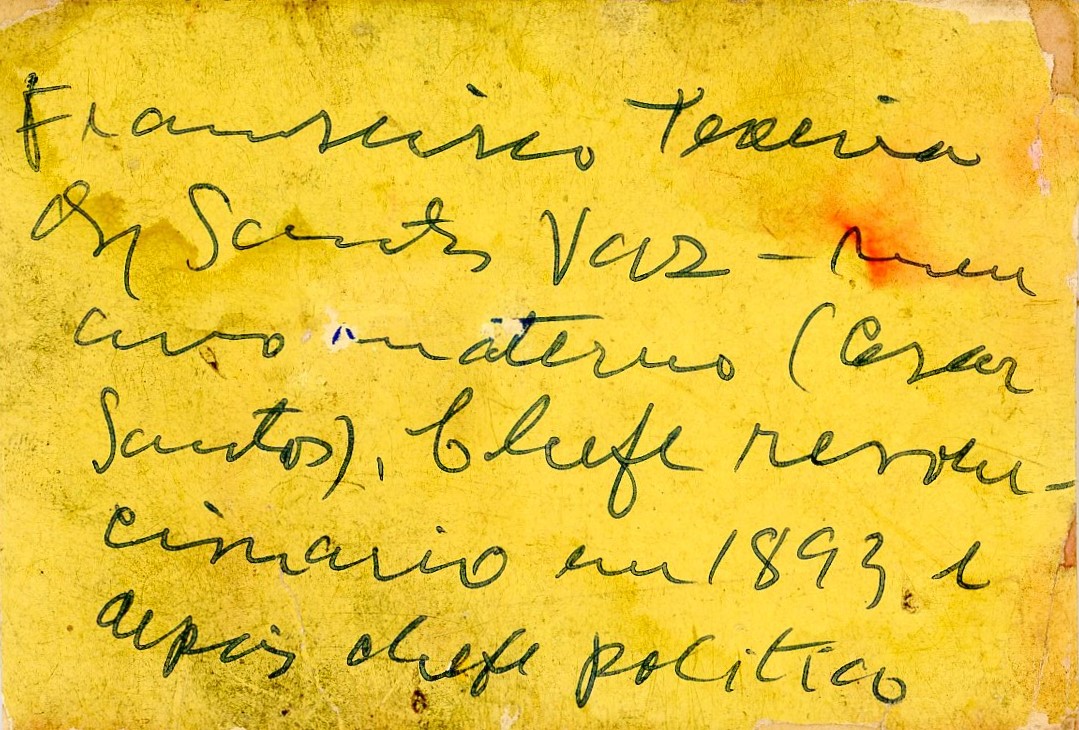 Francisco Texeira
dos Santos Vaz - meu
avo materno (Cesar
Santos). Chefe revolu-
cionario em 1893 e
depois chefe politico